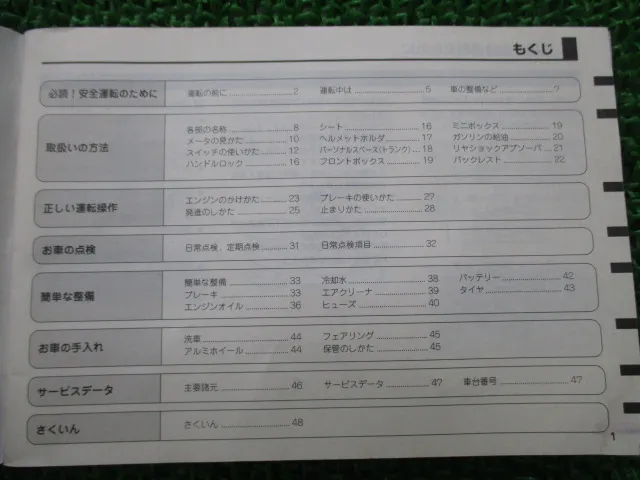 もくじ
必読!安全運転のために
運転の前に 2 運転中は 5 車の整備など 7
取扱いの方法
各部の名称 8 シート 16 ミニボックス 19
メータの見かた 10 ヘルメットホルダ 17 ガソリンの給油 20
スイッチの使いかた 12 パーソナルスペース(トランク) 18 リヤショックアブソーバ 21
ハンドルロック 16 フロントボックス 19 バックレスト 22
正しい運転操作
エンジンのかけかた 23 ブレーキの使いかた 27
発進のしかた 25 止まりかた 28
お車の点検
日常点検、定期点検 31 日常点検項目 32
簡単な整備
簡単な整備 33 冷却水 38 バッテリー 42
ブレーキ 33 エアクリーナ 39 タイヤ 43
エンジンオイル 36 ヒューズ 40
お車の手入れ
洗車 44 フェアリング 45
アルミホイール 44 保管のしかた 45
サービスデータ
主要諸元 46 サービスデータ 47 車台番号 47
さくいん
さくいん 48
1